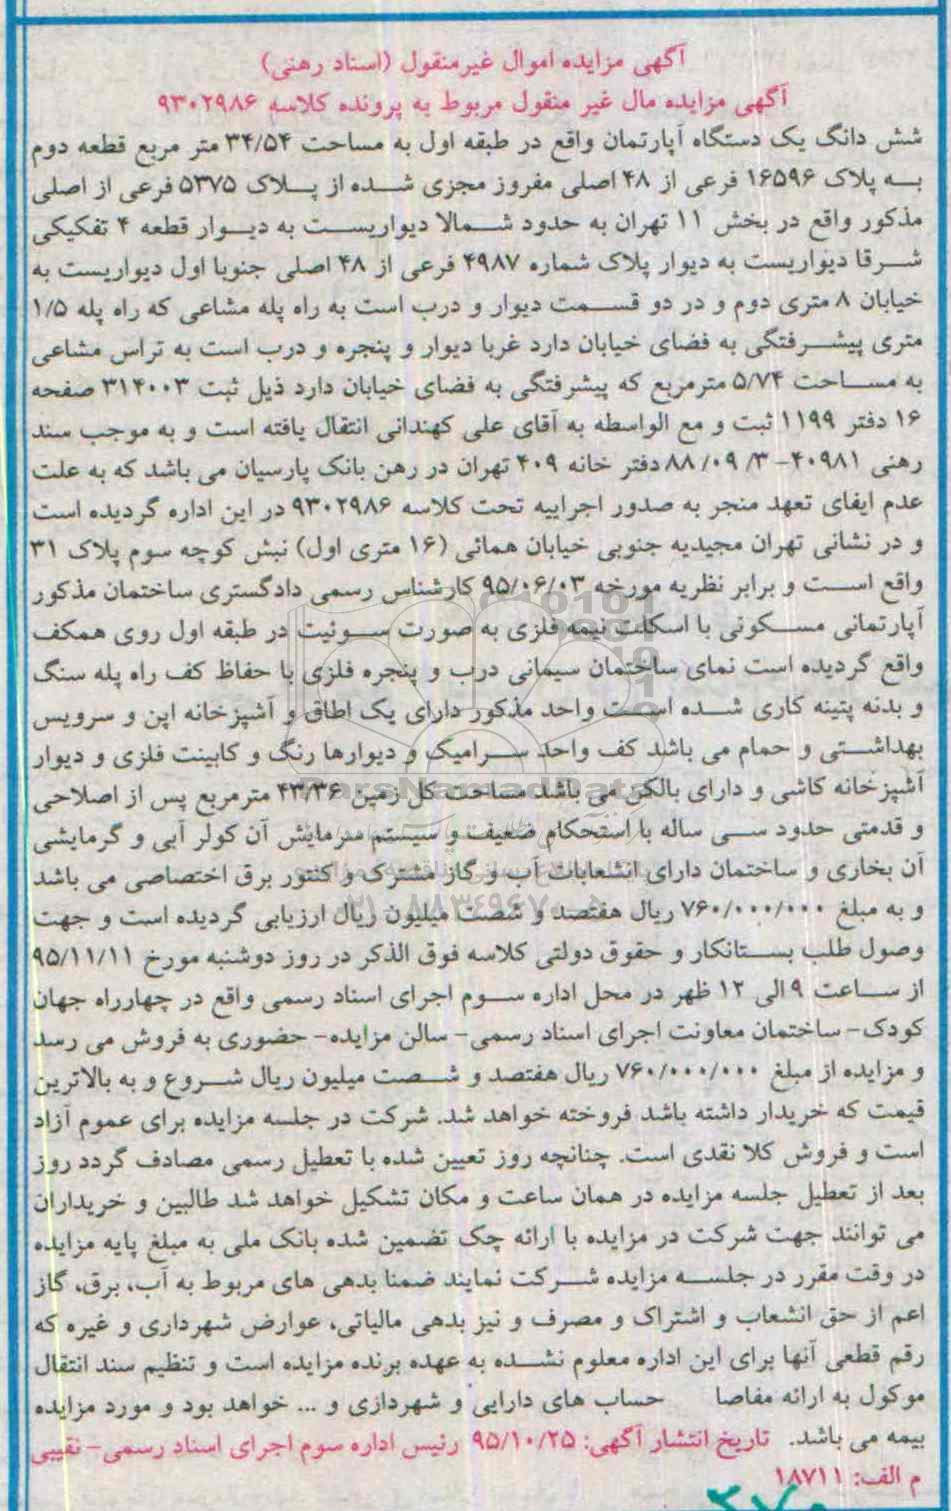 آگهی مزایده اموال غیرمنقول (اسناد رهنی)
آگهی مزایده مال غیر منقول مربوط به پرونده کلاسه ۹۳۰۲۹۸۶
شش دانگ یک دستگاه آپارتمان واقع در طبقه اول به مساحت ۳۴/۵۴ متر مربع قطعه دوم
به پلاک ۱۶۵۹۶ فرعی از ۴۸ اصلی مفروز مجزی شده از پلاک ۵۳۷۵ فرعی از اصلی
مذکور واقع در بخش ۱۱ تهران به حدود شمالا دیواریست به دیوار قطعه ۴ تفکیکی
شرقا دیواریست به دیوار پلاک شماره ۴۹۸۷ فرعی از ۴۸ اصلی جنوبا اول دیواریست به
خیابان ۸ متری دوم و در دو قسمت دیوار و درب است به راه پله مشاعی که راه پله ۱/۵
متری پیشرفتگی به فضای خیابان دارد غربا دیوار و پنجره و درب است به تراس مشاعی
به مساحت ۵/۷۴ مترمربع که پیشرفتگی به فضای خیابان دارد ذیل ثبت ۳۱۴۰۰۳ صفحه
۱۶ دفتر ۱۱۹۹ ثبت و مع الواسطه به آقای علی کهندانی انتقال یافته است و به موجب سند
رهنی ۴۰۹۸۱- ۸۸/۰۹/۳ دفتر خانه ۴۰۹ تهران در رهن بانک پارسیان می باشد که به علت
عدم ایفای تعهد منجر به صدور اجراییه تحت کلاسه ۹۳۰۲۹۸۶ در این اداره گردیده است
و در نشانی تهران مجیدیه جنوبی خیابان همائی (۱۶ متری اول) نبش کوچه سوم پلاک ۳۱
واقع است و برابر نظریه مورخه ۹۵/۰۶/۰۳ کارشناس رسمی دادگستری ساختمان مذکور
آپارتمانی مسکونی با اسکلت نیمه فلزی به صورت سوئیت در طبقه اول روی همکف
واقع گردیده است نمای ساختمان سیمانی درب و پنجره فلزی با حفاظ کف راه پله سنگ
و بدنه پتینه کاری شده است واحد مذکور دارای یک اطاق و آشپزخانه اپن و سرویس
بهداشتی و حمام می باشد کف واحد سرامیک و دیوارها رنگ و کابینت فلزی و دیوار
آشپزخانه کاشی و دارای بالکن می باشد مساحت کل زمین ۴۳/۳۶ مترمربع پس از اصلاحی
و قدمتی حدود سی ساله با استحکام ضعیف و سیستم سرمایش آن کولر آبی و گرمایشی
آن بخاری و ساختمان دارای انشعابات آب و گاز مشترک و کنتور برق اختصاصی می باشد
و به مبلغ ۷۶۰/۰۰۰/۰۰۰ ریال هفتصد و شصت میلیون ریال ارزیابی گردیده است و جهت
وصول طلب بستانکار و حقوق دولتی کلاسه فوق الذکر در روز دوشنبه مورخ ۹۵/۱۱/۱۱
از ساعت ۹ الی ۱۲ ظهر در محل اداره سوم اجرای اسناد رسمی واقع در چهارراه جهان
کودک- ساختمان معاونت اجرای اسناد رسمی- سالن مزایده- حضوری به فروش می رسد
و مزایده از مبلغ ۷۶۰/۰۰۰/۰۰۰ ریال هفتصد و شصت میلیون ریال شروع و به بالاترین
قیمت که خریدار داشته باشد فروخته خواهد شد. شرکت در جلسه مزایده برای عموم آزاد
است و فروش کلا نقدی است. چنانچه روز تعیین شده با تعطیل رسمی مصادف گردد روز
بعد از تعطیل جلسه مزایده در همان ساعت و مکان تشکیل خواهد شد طالبین و خریداران
می توانند جهت شرکت در مزایده با ارائه چک تضمین شده بانک ملی به مبلغ پایه مزایده
در وقت مقرر در جلسه مزایده شرکت نمایند ضمنا بدهی های مربوط به آب، برق، گاز
اعم از حق انشعاب و اشتراک و مصرف و نیز بدهی مالیاتی، عوارض شهرداری و غیره که
رقم قطعی آنها برای این اداره معلوم نشده به عهده برنده مزایده است و تنظیم سند انتقال
موکول به ارائه مفاصا حساب های دارایی و شهردازی و ... خواهد بود و مورد مزایده
بیمه می باشد. تاریخ انتشار آگهی: ۹۵/۱۰/۲۵ رئیس اداره سوم اجرای اسناد رسمی- نقیبی
م الف: ۱۸۷۱۱
ParsNamadData